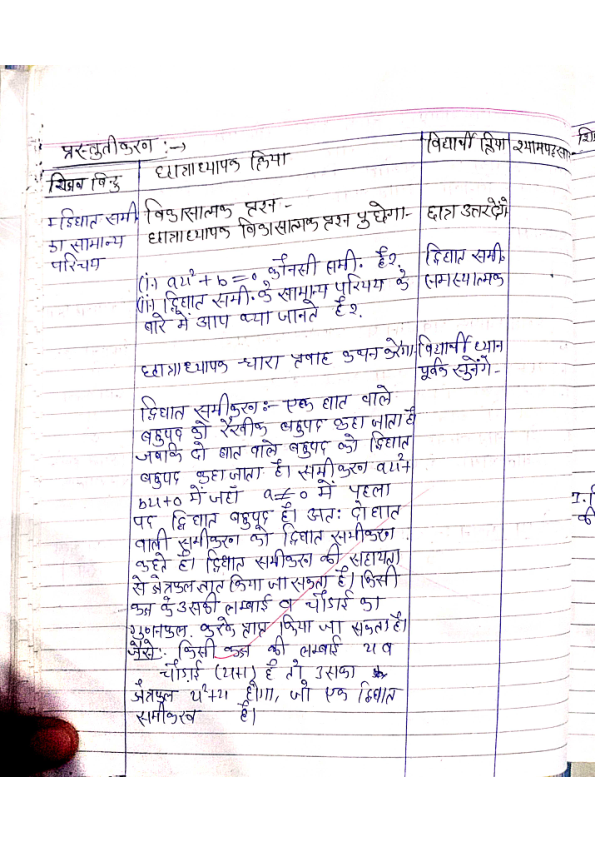 प्रस्तुतीकरण :→
शिक्षण बिन्दु
छात्राध्यापक क्रिया
विद्यार्थी क्रिया
श्यामपट्ट सा॰
द्विघात समी.
का सामान्य
परिचय
विकासात्मक प्रश्न -
छात्राध्यापक विकासात्मक प्रश्न पुछेगा-
छात्र उत्तर देंगे
(i) ax²+b=0 कौनसी समी. है?
(ii) द्विघात समी. के सामान्य परिचय के
बारे में आप क्या जानते हैं?
द्विघात समी.
समस्यात्मक
छात्राध्यापक धारा प्रवाह कथन करेगा
विद्यार्थी ध्यान
पूर्वक सुनेंगे-
द्विघात समीकरण:- एक घात वाले
बहुपद को रैखीक बहुपद कहा जाता है
जबकि दो घात वाले बहुपद को द्विघात
बहुपद कहा जाता है। समीकरण ax²+
bx+0 में जहाँ a≠0 में पहला
पद द्विघात बहुपद है। अतः दो घात
वाली समीकरण को द्विघात समीकरण
कहते है। द्विघात समीकरण की सहायता
से क्षेत्रफल ज्ञात किया जा सकता है। किसी
कक्ष के उसकी लम्बाई व चौड़ाई का
गुणनफल करके प्राप्त किया जा सकता है।
जैसे:- किसी कक्ष की लम्बाई x व
चौड़ाई (x+1) है तो उसका
क्षेत्रफल x²+x होगा, जो एक द्विघात
समीकरण है।